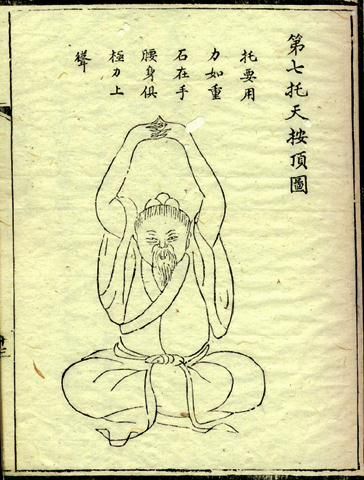 第七托天按頂圖
托要用
力如重
石在手
腰身俱
極力上
聳